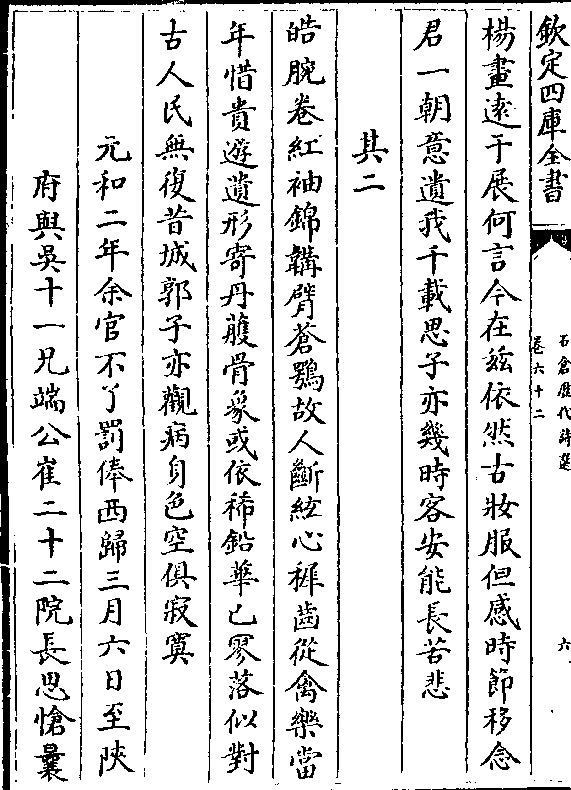 欽定四庫全書
石倉歷代詩選
卷六十二
六
楊畫遠于展何言今在兹依然古妝服但感時節移念
君一朝意遺我千載思子亦幾時客安能長苦悲
其二
皓腕卷紅袖錦韝臂蒼鶚故人斷絃心稚齒從禽樂當
年惜貴遊遺形寄丹雘骨象或依稀鉛華已寥落似對
古人民無復昔城郭子亦觀病身色空俱寂寞
元和二年余官不了罰俸西歸三月六日至陝
府與吳十一兄端公崔二十二院長思愴曩